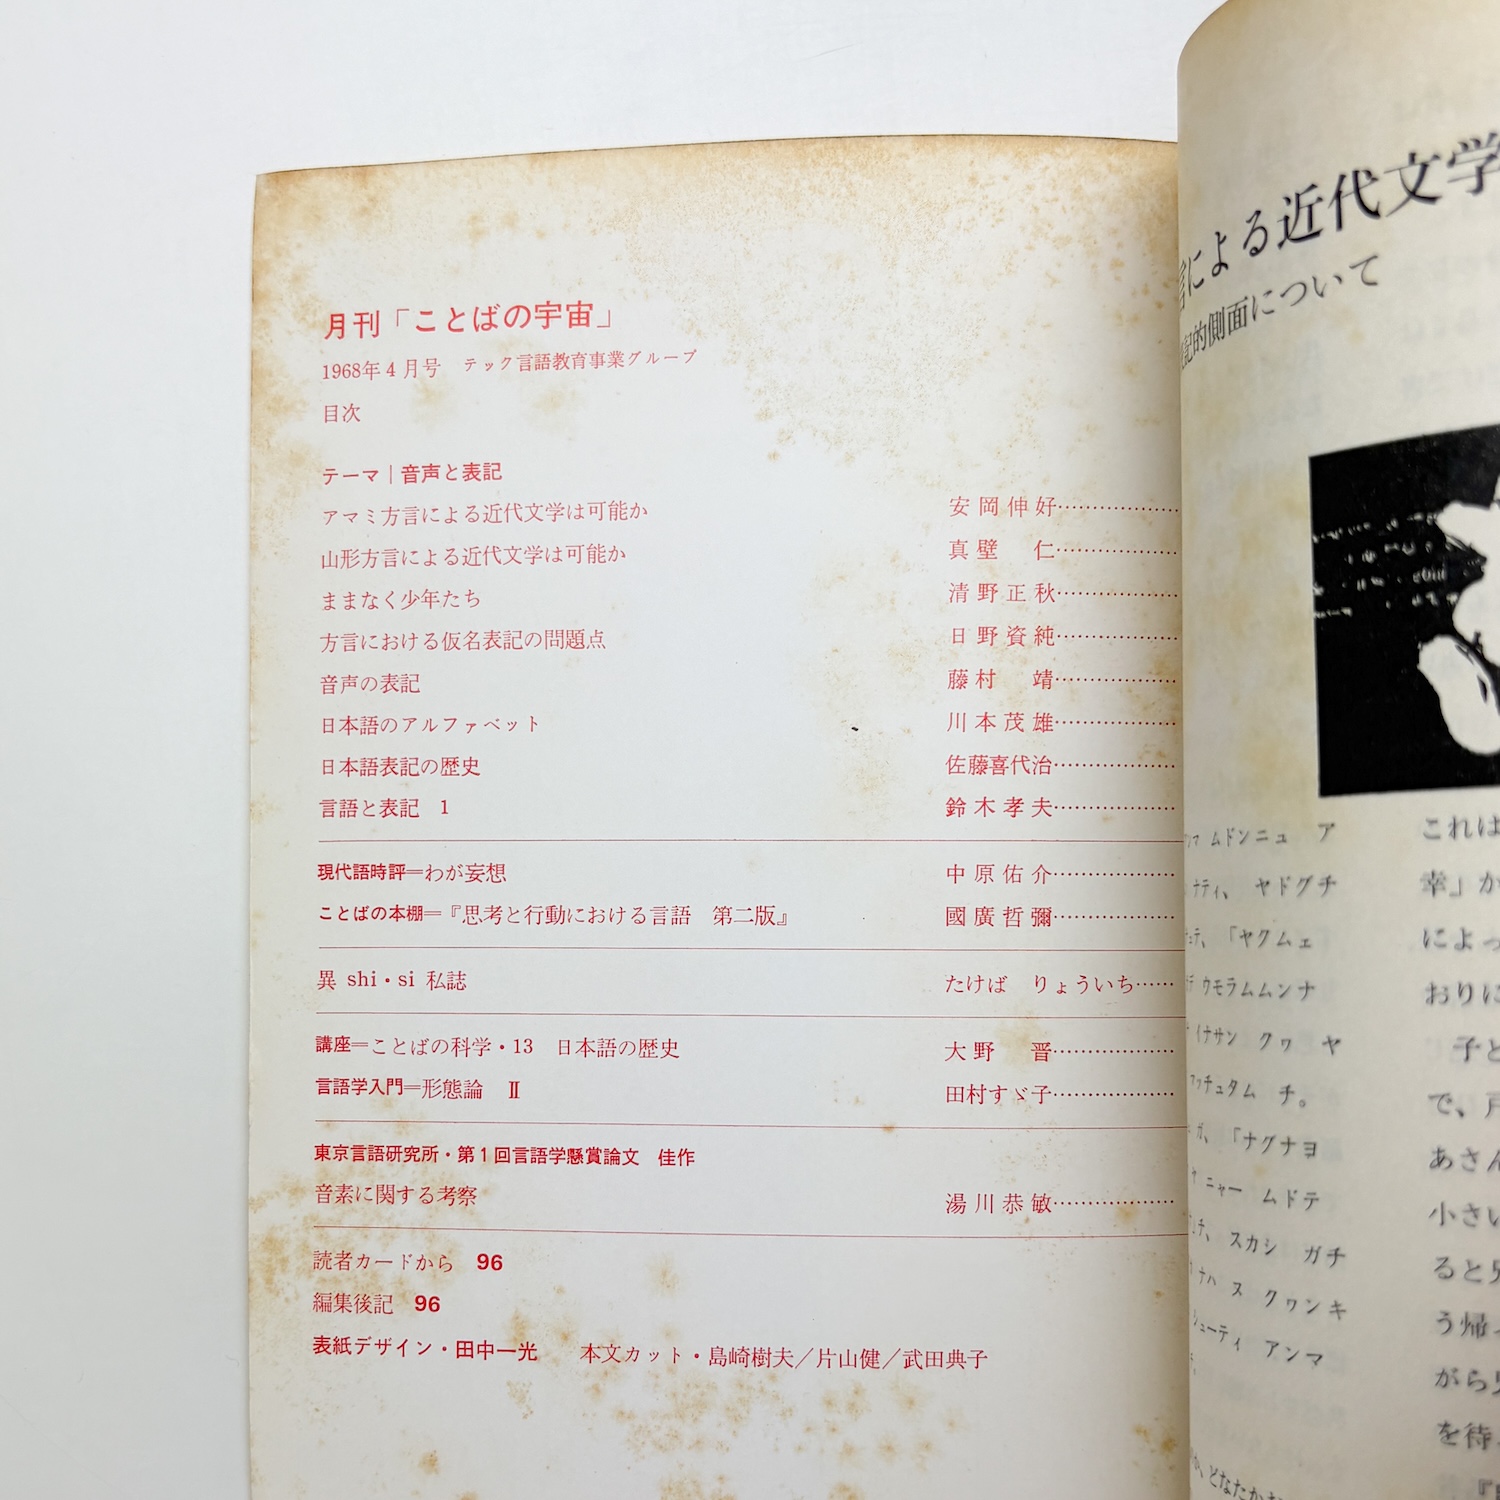 月刊「ことばの宇宙」
1968年4月号　テック言語教育事業グループ
目次
テーマ｜音声と表記
アマミ方言による近代文学は可能か　安岡伸好…………
山形方言による近代文学は可能か　真壁　仁…………
ままなく少年たち　清野正秋…………
方言における仮名表記の問題点　日野資純…………
音声の表記　藤村　靖…………
日本語のアルファベット　川本茂雄…………
日本語表記の歴史　佐藤喜代治…………
言語と表記　1　鈴木孝夫…………
現代語時評＝わが妄想　中原佑介…………
ことばの本棚＝『思考と行動における言語　第二版』　國廣哲彌…………
異 shi・si 私誌　たけば　りょういち……
講座＝ことばの科学・13　日本語の歴史　大野　晋…………
言語学入門＝形態論　Ⅱ　田村すゞ子…………
東京言語研究所・第1回言語学懸賞論文　佳作
音素に関する考察　湯川恭敏…………
読者カードから　96
編集後記　96
表紙デザイン・田中一光　本文カット・島崎樹夫／片山健／武田典子
による近代文学
記的側面について
ムドンニュ　ア
ナティ、　ヤドグチ
「ヤクムェ
ウモラムムンナ
イナサン　クヮ　ヤ
マッチュタム　チ。
ガ、「ナグナヨ
ニャー　ムドテ
チ、スカシ　ガチ
ナハ　ス　クヮンキ
シューティ　アンマ
どなたか
これは
幸」か
によっ
おりに
子と
で、戸
あさん
小さい
ると兄
う帰っ
がら兄
を待